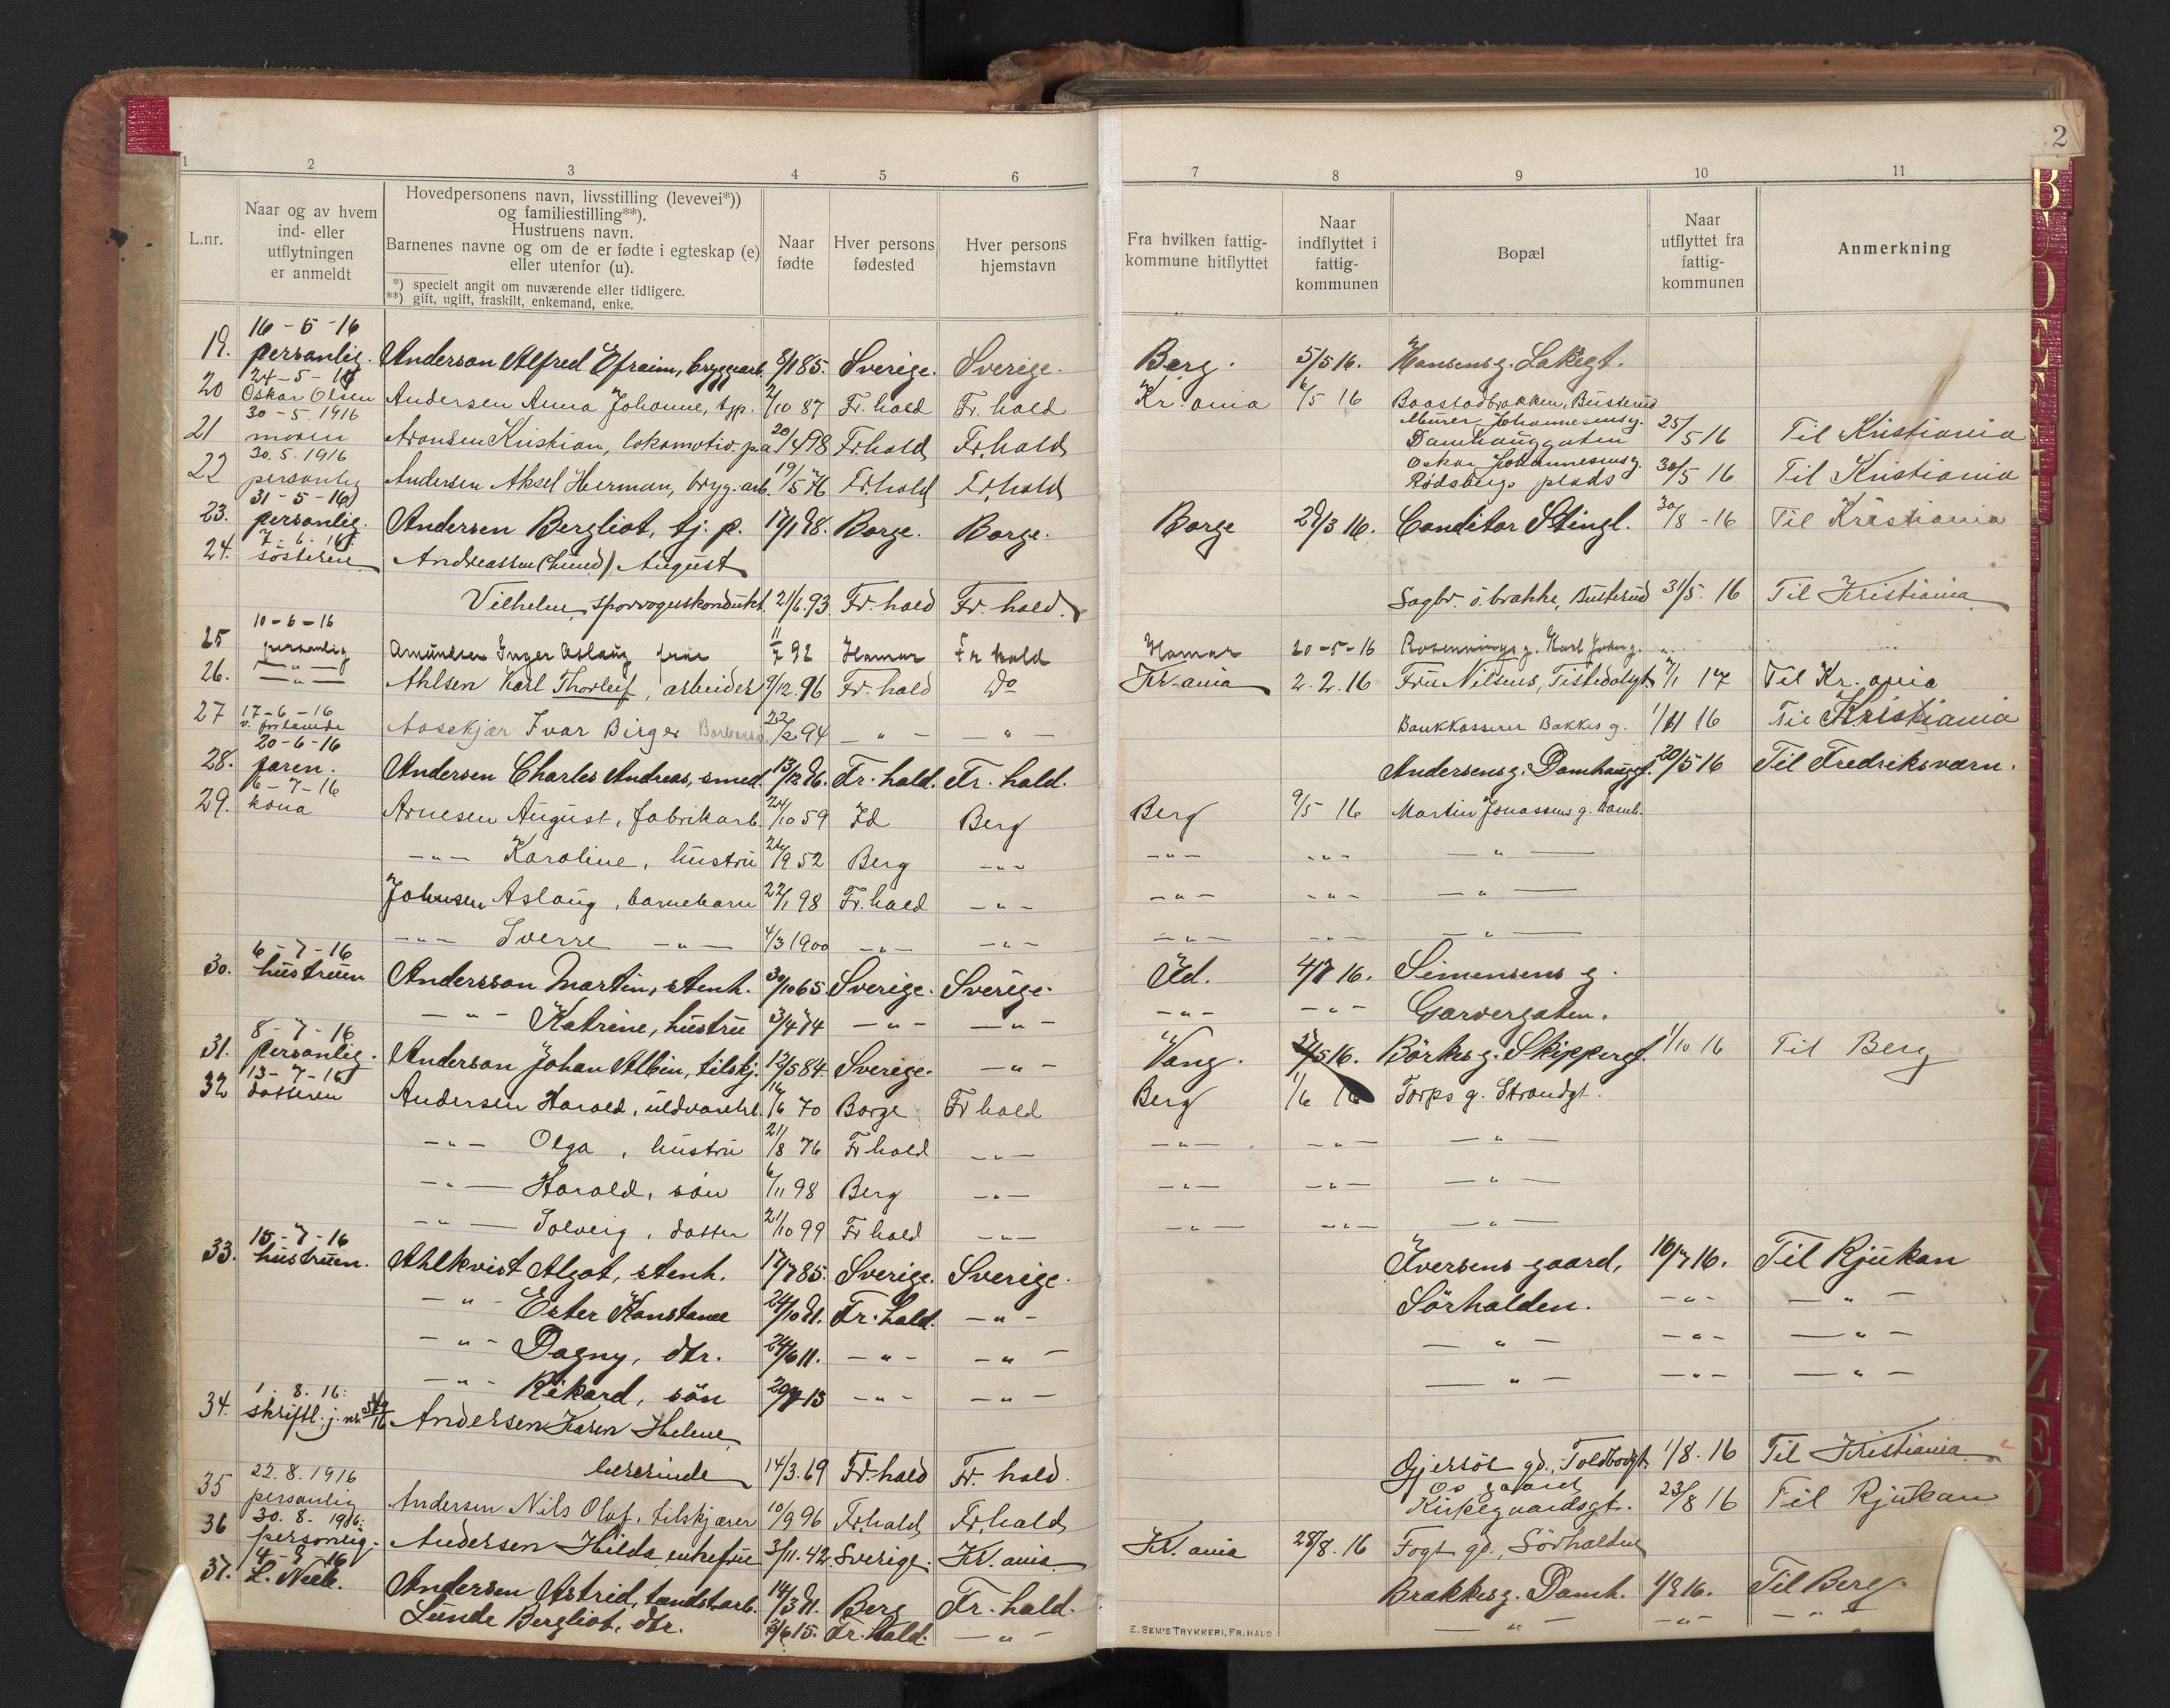 2
1 2 3 4 5 6 7 8 9 10 11
L.nr.
Naar og av hvem
ind- eller
utflytningen
er anmeldt
Hovedpersonens navn, livsstilling (levevei*))
og familiestilling**).
Hustruens navn.
Barnenes navne og om de er fødte i egteskap (e)
eller utenfor (u).
*) specielt angit om nuværende eller tidligere.
**) gift, ugift, fraskilt, enkemand, enke.
Naar
fødte
Hver persons
fødested
Hver persons
hjemstavn
Fra hvilken fattig-
kommune hitflyttet
Naar
indflyttet i
fattig-
kommunen
Bopæl
Naar
utflyttet fra
fattig-
kommunen
Anmerkning
16-5-16
19. personlig. Anderson Alfred Efraim, bryggearb. 8/1 85. Sverige. Sverige. Berg. 5/5 16. Hansens g. Lakegt.
24-5-16
20 Oskar Olsen Andersen Anna Johanne, tjp. 2/10 87 Fr. hald Fr. hald Kr. ania 6/5 16 Baastadbrakken, Busterud
30-5.1916 Murer Johannesens g.
21 moren Aronsen Kristian, lokomotiv. pa 20/4 98 Fr.hald Fr.hald Damhauggaten 25/5 16 Til Kristiania
30.5.1916 Oskar Johannesens g.
22 personlig Andersen Aksel Herman, bryg. arb. 19/5 76 Fr.hald Fr.hald Rødsbergs plads 30/5 16 Til Kristiania
31-5-16
23. personlig. Andersen Bergliot, tj. p. 17/1 98. Borge. Borge. Borge 29/3 16. Conditor Stingl. 30/8-16 Til Kristiania
7.6.16.
24. søsteren Andreassen (Lund) August
Vilhelm, sporvognskondukt. 21/6.93 Fr. hald Fr. hald. Sagbr. ö. brakke, Busterud 31/5. 16 Til Kristiania
10-6-16
25 personlig Amundsen Inger Aslaug frue 11/7 92 Hamar Fr hald Hamar 20-5-16 Karl Johans g.
26. —"— Ahlsen Karl Thorleif, arbeider 9/12.96 Fr. hald Do Kr.ania 2.2.16 Fru Nilsens, Tistedalsgt. 7/1 17 Til Kr. ania
17-6-16
27 Aasekjær Ivar Birger 22/2 94 — " — — " — Bankkasserer Bakkes g. 1/11 16 Til Kristiania
20-6-16
28. faren. Andersen Charles Andreas, smed. 13/12 96. Fr. hald. Fr. hald. Andersens g. Damhauggt. 20/5 16 Til Fredriksværn.
6-7-16
29. kona Arnesen August, fabrikarb. 24/10 59 Id Berg Berg 9/5 16 Martin Jonassens g. Damh.
—"— Karoline, hustru 24/9 52 Berg —"— —"— —"— —"—
Johnsen Aslaug, barnebarn 22/1 98 Fr. hald —"— —"— —"— —"—
—"— Sverre —"— 4/3 1900 —"— —"— —"— —"— —"—
6-7-16
30. hustruen Andersson Martin, stenh. 30/10 65. Sverige. Sverige. Id. 4/7 16. Simensens g.
—"— Katrine, hustru 3/4 74 —"— —"— —"— —"— Garvergaten.
8-7-16
31. personlig. Anderson Johan Albin, tilskj. 12/5 84. Sverige. —"— Vang. /5 16. Börkes g. Skippergt. 1/10 16 Til Berg
13-7-16
32 datteren Andersen Harald, uldvarehl. 16/6 70 Borge Fr hald Berg 1/6 16 Torps g. Strandgt.
—"— Olga, hustru 21/8 76 Fr hald —"— —"— —"— —"—
—"— Harald, sön 6/11 98 Berg —"— —"— —"— —"—
—"— Solveig, datter 21/10 99 Fr hald —"— —"— —"— —"—
15-7-16
33. hustruen. Ahlkvist Algot, stenh. 17/7 85. Sverige. Sverige. Iversens gaard, 16/7 16. Til Rjukan
—"— Ester Konstance 24/10 91. Fr. hald. —"— Sörhalden. —"— —"—
—"— Dagny, dtr. 24/6 11. —"— —"— —"— —"— —"—
—"— Rikard, sön 29/7 13 —"— —"— —"— —"— —"—
1.8.16:
34. skriftl. j. nr. Andersen Karen Helene,
lærerinde 14/3.69 Fr. hald Fr. hald. Gjersöe gd., Toldbodgt. 1/8.16 Til Kristiania
22.8.1916 Os gaard
35 personlig Andersen Nils Olaf, tilskjærer 10/9 96 Fr.hald Fr.hald Kirkegaardsgt. 23/8 16 Til Rjukan
30.8.1916:
36 personlig. Andersen Hilda enkefrue 3/11.42. Sverige. Kr. ania Kr. ania 28/8.16 Fogt gd., Sörhalden
4-9-16
37. Andersen Astrid, tandst.arb. 14/3 91. Berg Fr. hald. Brakkes g. Damh. 1/9 16. Til Berg.
Lunde Bergliot, dtr. 3/6 15. Fr. Hald. —"— —"— —"— —"—
E. SEM'S TRYKKERI, FR.HALD
B
D
E
U
V
X
Y
Z
Ø